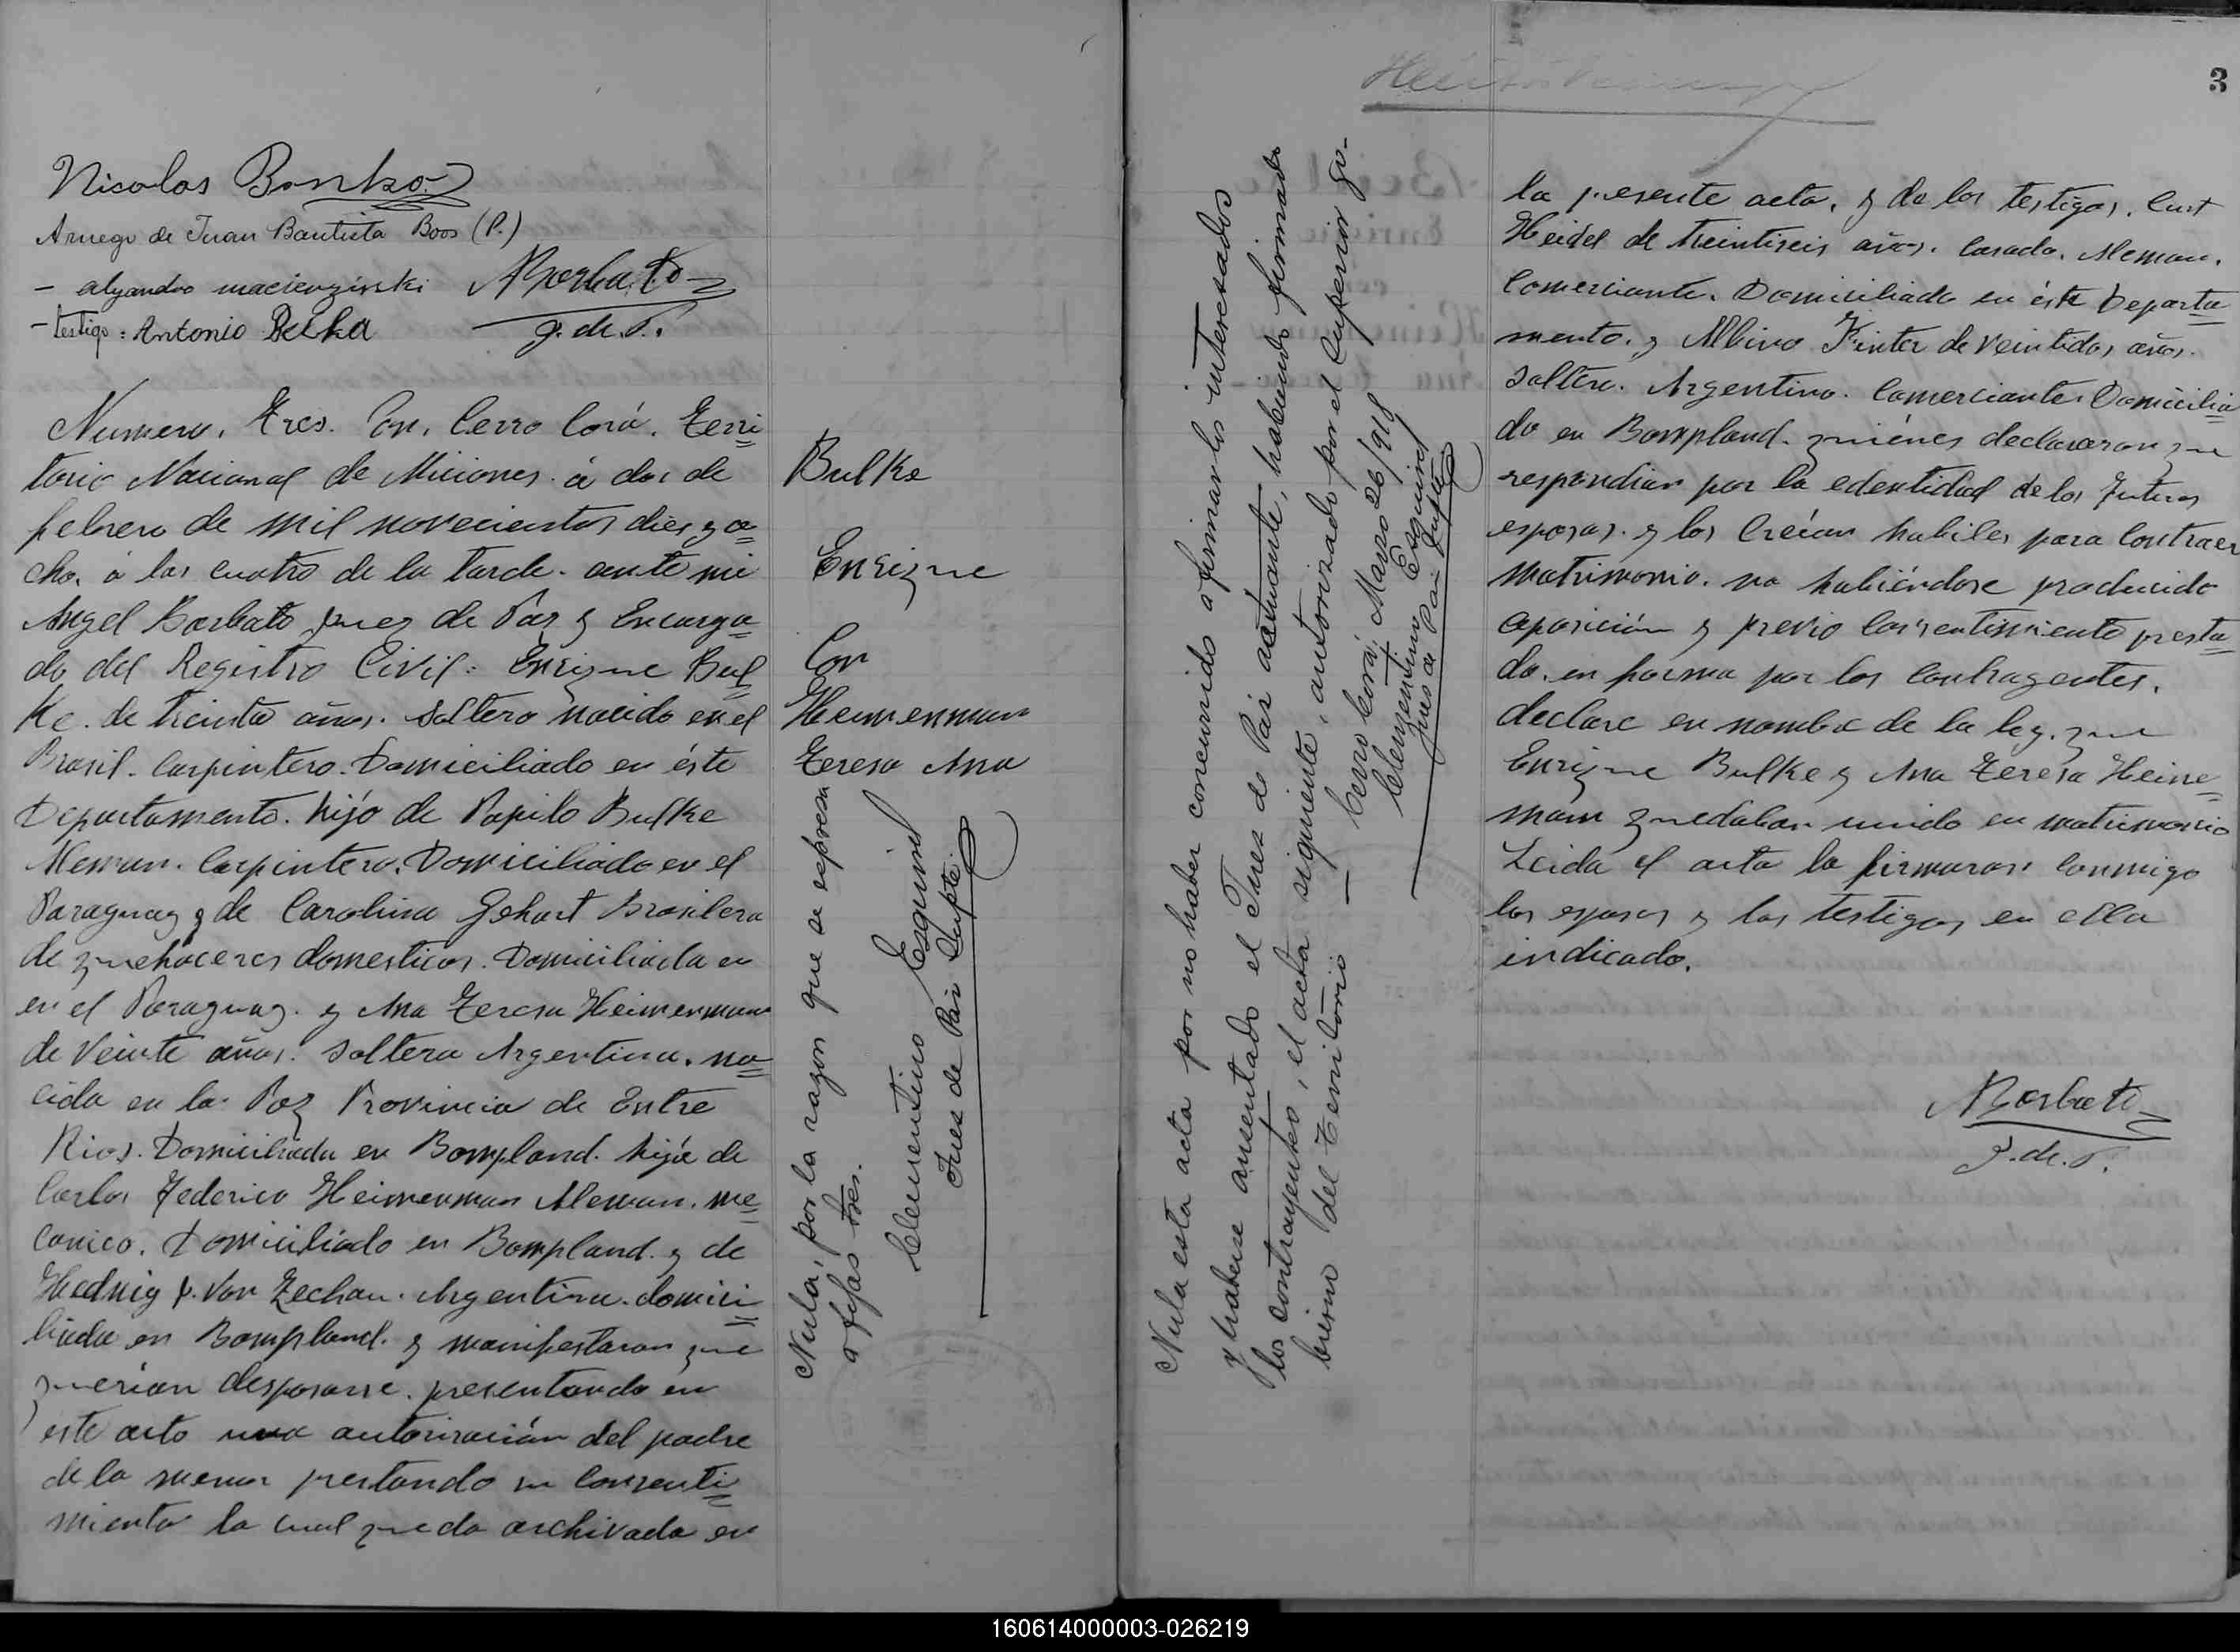 Nicolas Bonko
Aruego de Juan Bautista Boos (P.)
- alyandro macienzinski ABarbato
- testigo: Antonio Belka J. de P.
Numero. Tres. En, Cerro Corá. Terri
torio Nacional de Miciones. á dos de
febrero de mil novecientos diez y o
cho. á las cuatro de la tarde. ante mi
Angel Barbato juez de Páz y Encarga
do del Registro Civil: Enrique Bul
Ke. de treinta años. Soltero nacido en el
Brasil. Carpintero. Domiciliado en éste
Departamento. hijo de Papilo Bulke
Aleman. Carpintero. Domiciliado en el
Paraguay y de Carolina Gehart Brasilera
de quehaceres domesticos. Domiciliada en
en el Paraguay. y Ana Teresa Heimerman
de Veinte años. Soltera Argentina. na
cida en la Paz Provincia de Entre
Rios. Domiciliada en Bompland. hija de
Carlos Federico Heimerman Aleman. me
canico. Domiciliado en Bompland. y de
Hedwig p. Von Zechau. Argentina. domici
liada en Bompland. y manifestaron que
querian desposarse. presentando en
este acto una autorización del padre
de la menor prestando su Consenti
miento la cual queda archivada en
Bulke
Enrique
Con
Heimerman
Teresa Ana
Nula, por la razon que se espresa
a fojas tres.
Clementino Esquivel
Juez de Paz Suplte.
Nula esta acta por no haber concurrido a firmar los interesados
y haberse ausentado el Juez de Paz actuante, habiendo firmado
los contrayentes, el acta siguiente, autorizado por el Superior go-
bierno del Territorio — Cerro Corá, Marzo 26/918
Clementino Esquivel
Juez de Paz Suplte
3
la presente acta. y de los testigos. Curt
Heidel de treintiseis años. Casado. Aleman.
Comerciante. Domiciliado en éste Departa
mento. y Albino Kinter de Veintidos años.
Soltero. Argentino. Comerciante. Domicilia
do en Bompland. quiénes declararon que
respondian por la edentidad de los futuros
esposos. y los Creian habiles para Contraer
matrimonio. no habiéndose producido
oposición y previo Consentimiento presta
do. en forma por los Contragentes.
declare en nombre de la ley. que
Enrique Bulke y Ana Teresa Heime
mam quedaban unido en matrimonio
Leida el acta la firmaron Conmigo
los esposos y los testigos en ella
indicado.
ABarbato
J. de P.
160614000003-026219